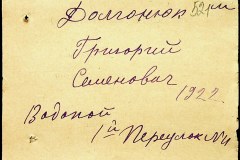 Долгонюк 521
Григорий
Семенович
1922.
Водопой
1й Переулок №4